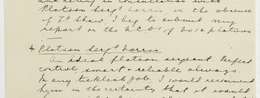 Platoon Sergt Barron in the absence
of Lt Shaw I beg to submit my
report on the N.C.O's of No 10 platoon
Platoon Sergt Barron
An ideal platoon sergeant. Perfect
control, smart & reliable always.
In any ticklish job I would recommend
him in the certainty that it would